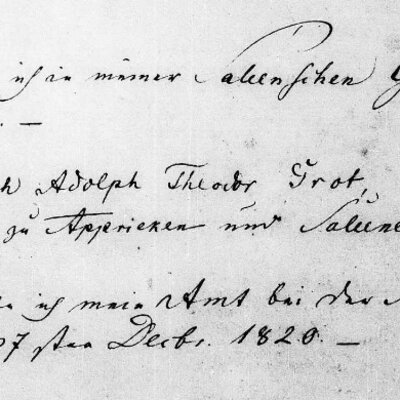 ich in meiner Salienschen G
. —
h Adolph Theodor Grot,
zu Appricken und Saliene
ich mein Amt bei der
7 sten Decbr. 1820. —